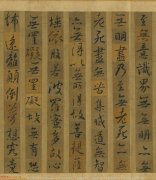 至無意識界無無明亦
無無明盡乃至無老死亦
無老死盡無苦集滅道無智
亦無得以無所得故菩提薩
埵依般若波羅蜜多故心
無罣礙無罣礙故無有恐
怖遠離顛倒夢想究竟